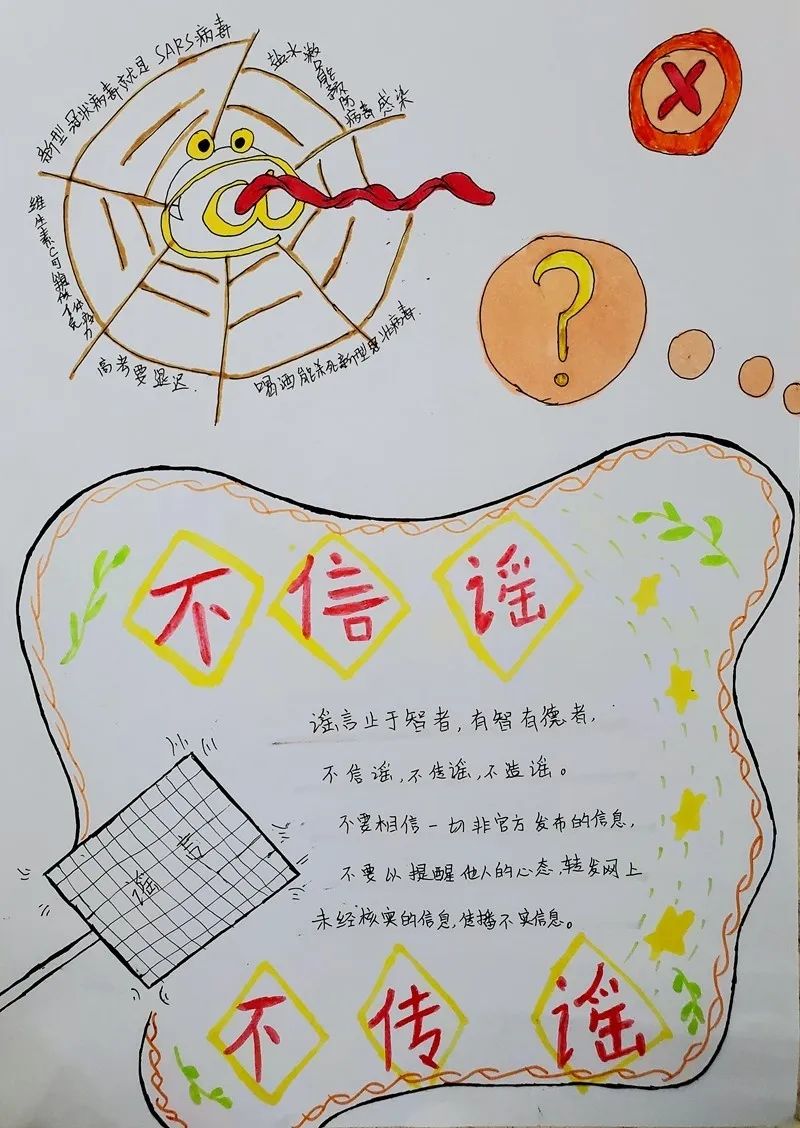 新型冠状病毒就是SARS病毒
盐水漱口能预防病毒感染
维生素C可锻做个体免疫力
高考要显迟
喝酒能杀死新型冠状病毒
?
不信谣
谣言止于智者,有智有德者,
不信谣,不传谣,不造谣。
不要相信一切非官方发布的信息,
不要以提醒他人的心态,转发网上
未经核实的信息,传播不实信息。
谣言
不传谣